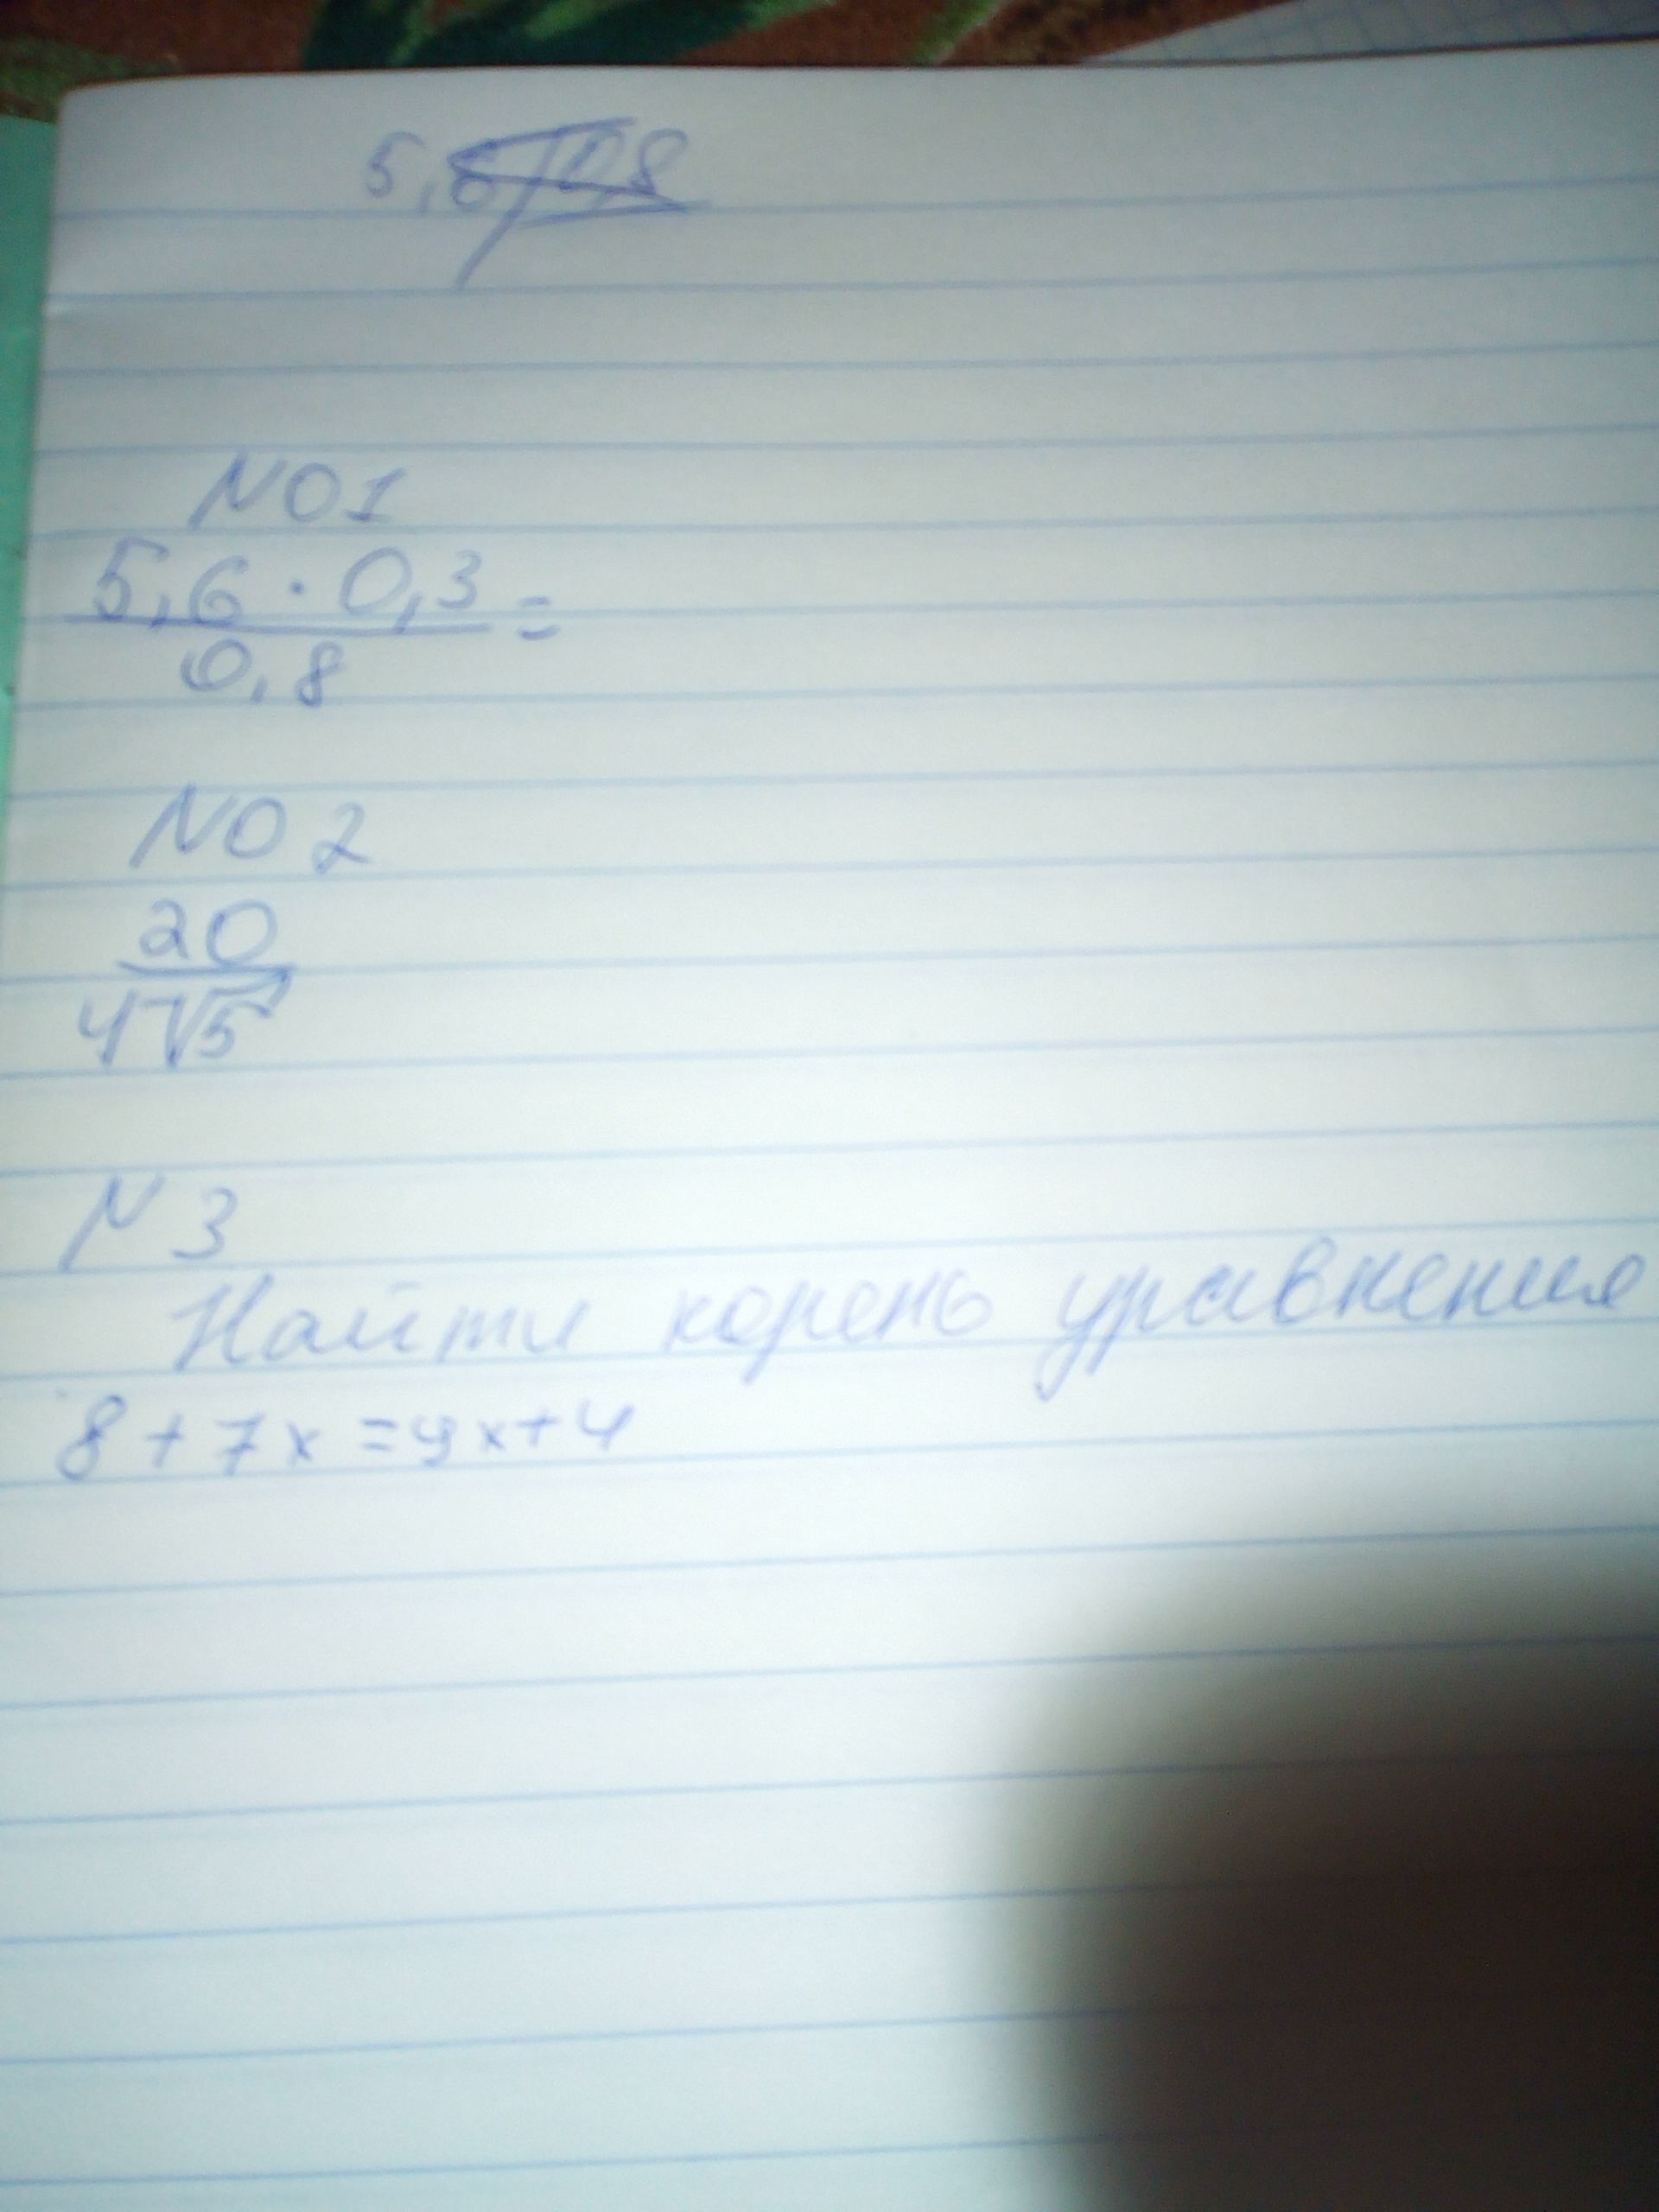 5,6
NO1
5,6 · 0,3 =
0,8
NO 2
20
4√5
N 3
Найти корень уравнения
8 + 7x = 9x + 4